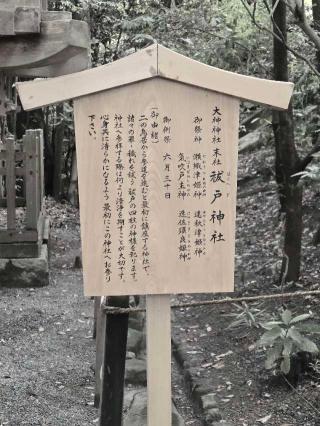 大神神社末社 祓戸神社
はらえど
御祭神 瀬織津姫神 速秋津姫神
気吹戸主神 速佐須良姫神
御例祭 六月三十日
(御由緒)
二の鳥居から参道を進むと最初に鎮座する神社で、
諸々の罪・穢れを祓う祓戸の四柱の神様を祀ります。
神社へ参拝する際は何より清浄を期すことが大切です。
心身共に清らかになるよう最初にこの神社へお参り
下さい。